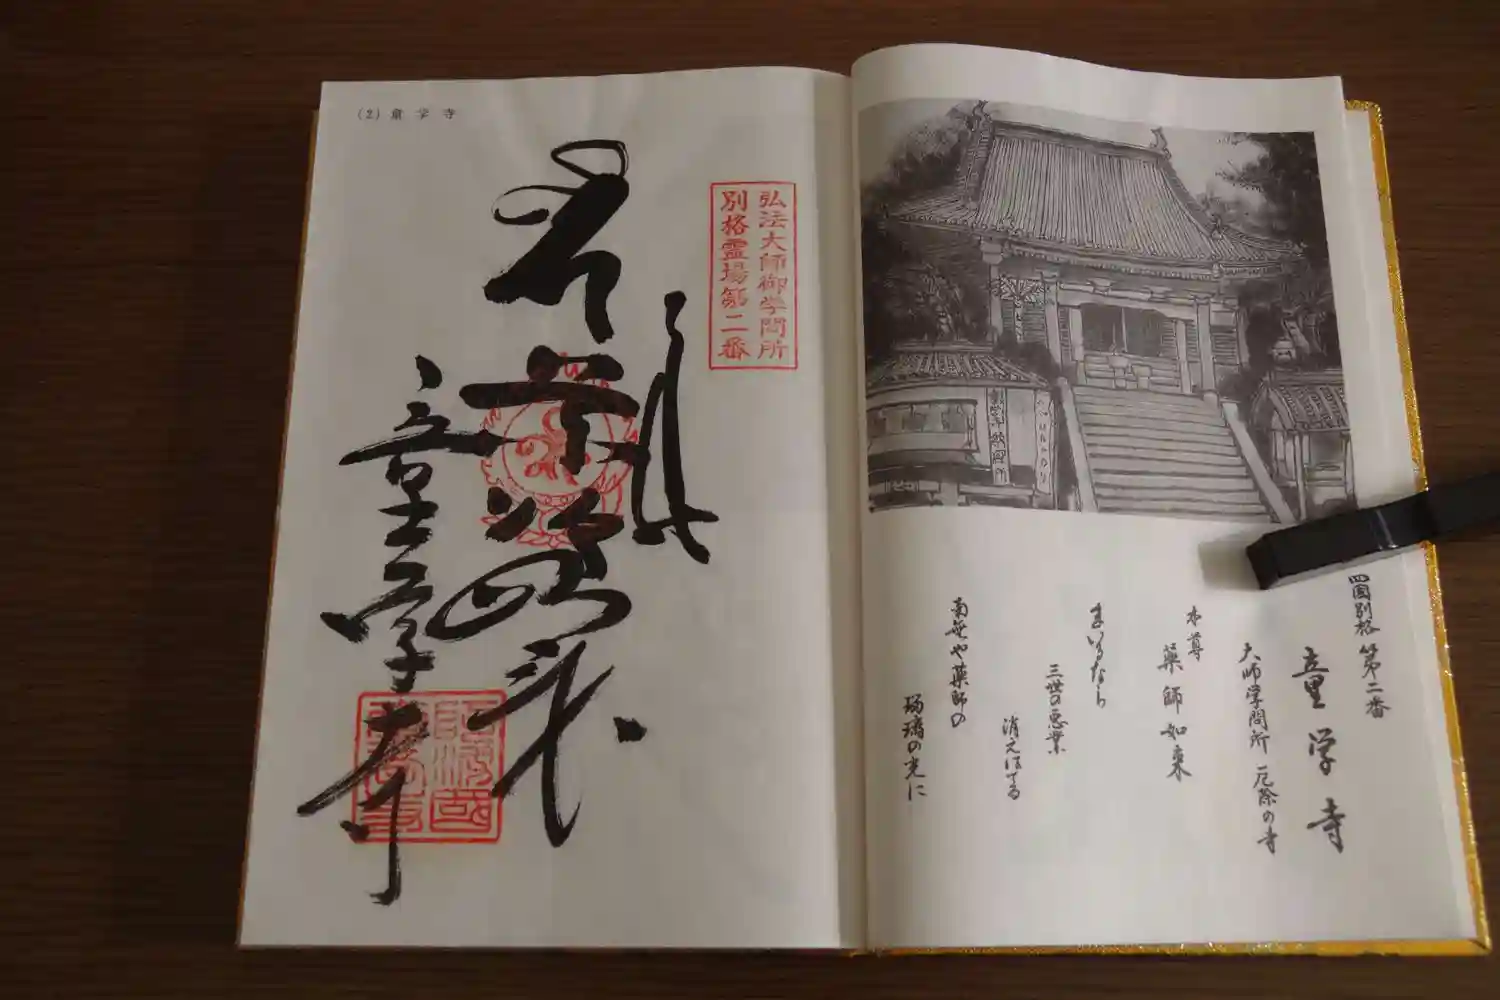 四国別格 第二番
童学寺
大師学問所 厄除の寺
本尊
薬師如来
まいるなら
三世の悪業
消えはてる
南無や薬師の
瑠璃の光に
(2) 童学寺
弘法大師御学問所
別格霊場第二番
童学寺